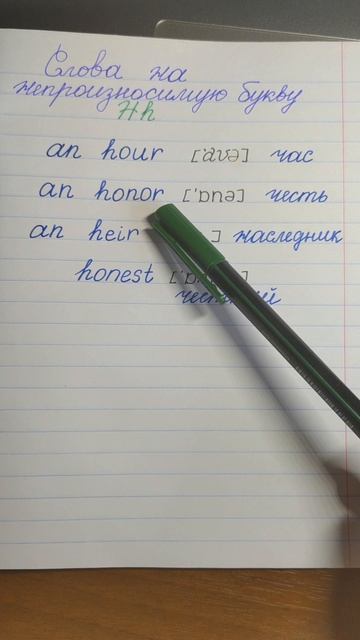 Слова на
непроизносимую букву
Hh
an hour ['aʊə] час
an honor ['ɒnə] честь
an heir ] наследник
honest ['ɒ ]